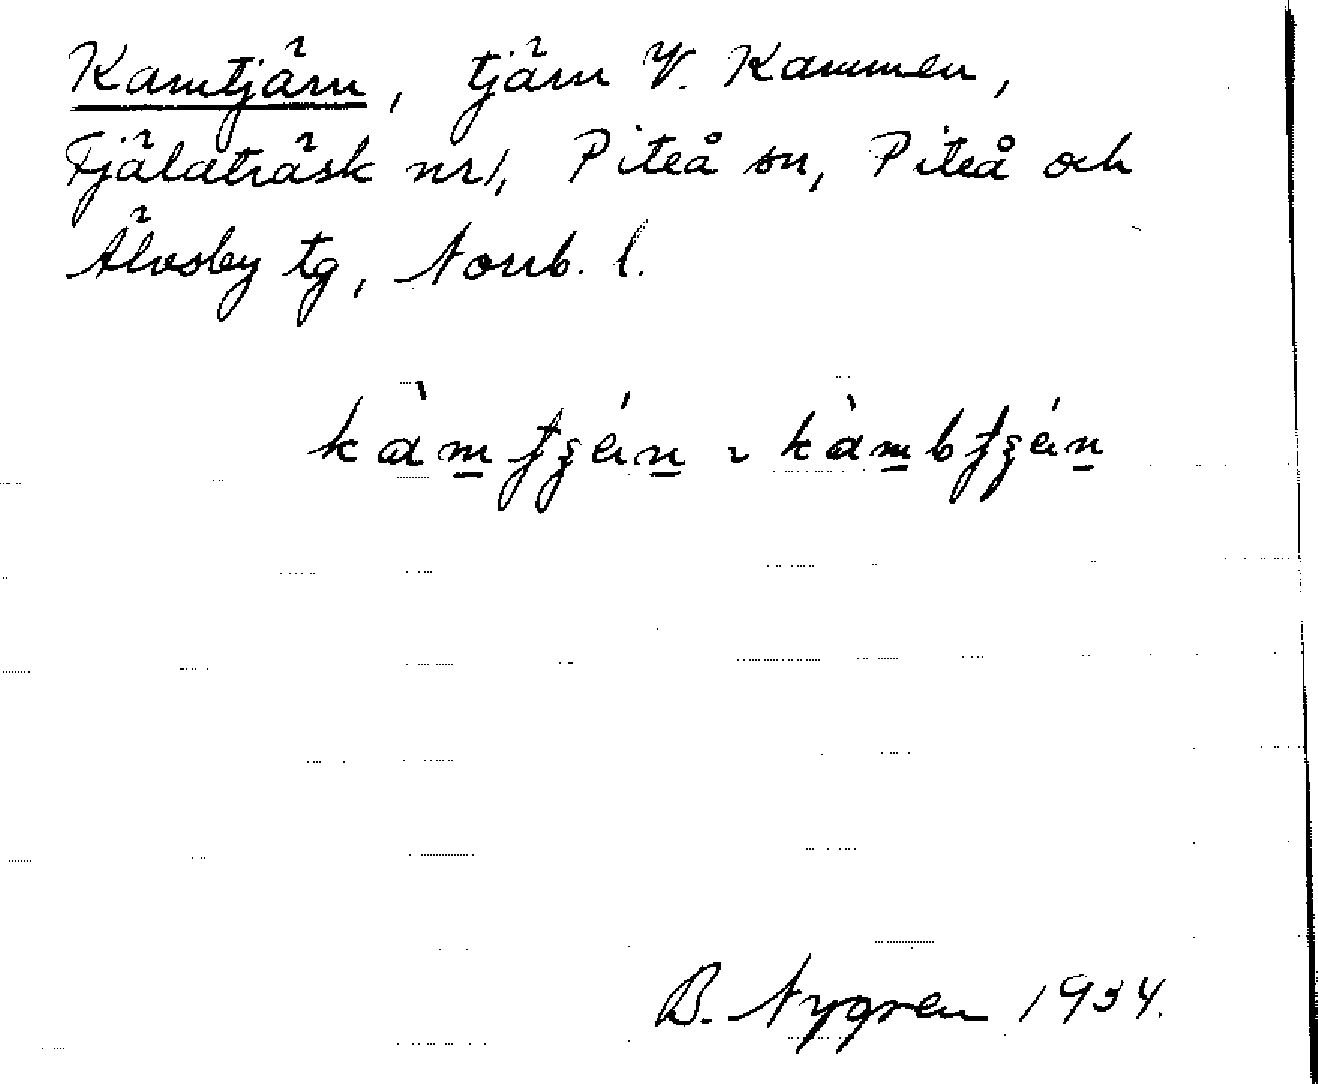 Kamtjärn, tjärn V. Kammen,
Fjälaträsk nr 1, Piteå sn, Piteå och
Älvsby tg, Norrb. l.
B. Nygren 1934.